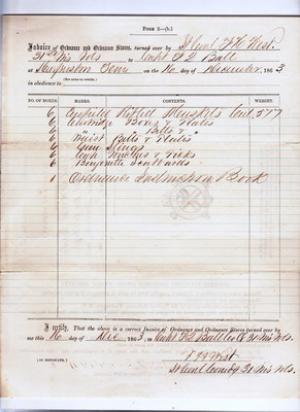 FORM 2—(b.)
Invoice of Ordnance and Ordnance Stores, turned over by Lt Col F. H. West,
31st Wis Vols to Lieut F L Ball
at Tenn on the 16 day of December, 1863
in obedience to
NO. OF BOXES. MARKS. CONTENTS. WEIGHT.
6 Enfield Rifled Muskets Cal. 577
6 Cartridge Boxes & Plates
6 " Belts & "
6 Waist Belts & Plates
6 Gun Slings
6 Cone Picks
6 Bayonette Scabbards
1 Ordnance Book
I certify, That the above is a correct Invoice of Ordnance and Ordnance Stores turned over by
me this 16 day of Dec 1863, to Lieut F L Ball 31 Wis Vols.
(IN DUPLICATE.)
F H West
Lt Col Comdg 31 Wis Vols.